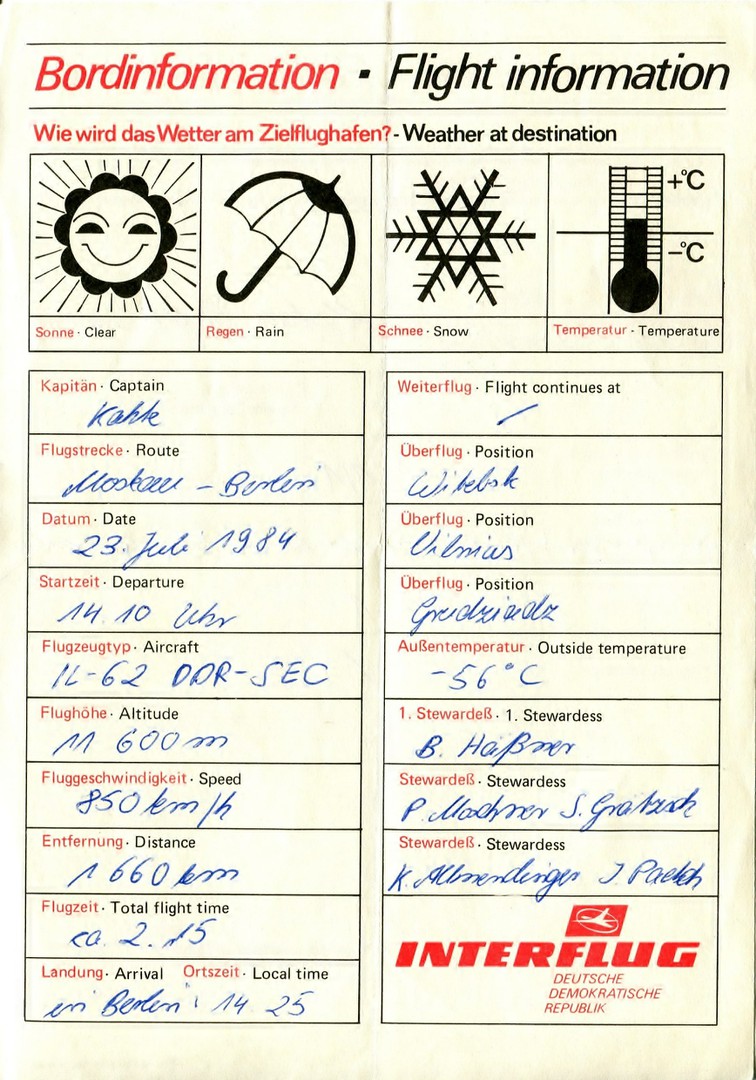 Bordinformation ▪ Flight information
Wie wird das Wetter am Zielflughafen? - Weather at destination
+°C
-°C
Sonne · Clear
Regen · Rain
Schnee · Snow
Temperatur · Temperature
Kapitän · Captain
Kahle
Flugstrecke · Route
Moskau - Berlin
Datum · Date
23. Juli 1984
Startzeit · Departure
14.10 Uhr
Flugzeugtyp · Aircraft
IL-62 DDR-SEC
Flughöhe · Altitude
11 600 m
Fluggeschwindigkeit · Speed
850 km/h
Entfernung · Distance
1 660 km
Flugzeit · Total flight time
ca. 2.15
Landung · Arrival Ortszeit · Local time
in Berlin: 14 25
Weiterflug · Flight continues at
Überflug · Position
Witebsk
Überflug · Position
Vilnius
Überflug · Position
Grudziadz
Außentemperatur · Outside temperature
-56°C
1. Stewardeß · 1. Stewardess
B. Häßner
Stewardeß · Stewardess
P. S. Grätzsch
Stewardeß · Stewardess
K. Allmendinger J.
INTERFLUG
DEUTSCHE
DEMOKRATISCHE
REPUBLIK